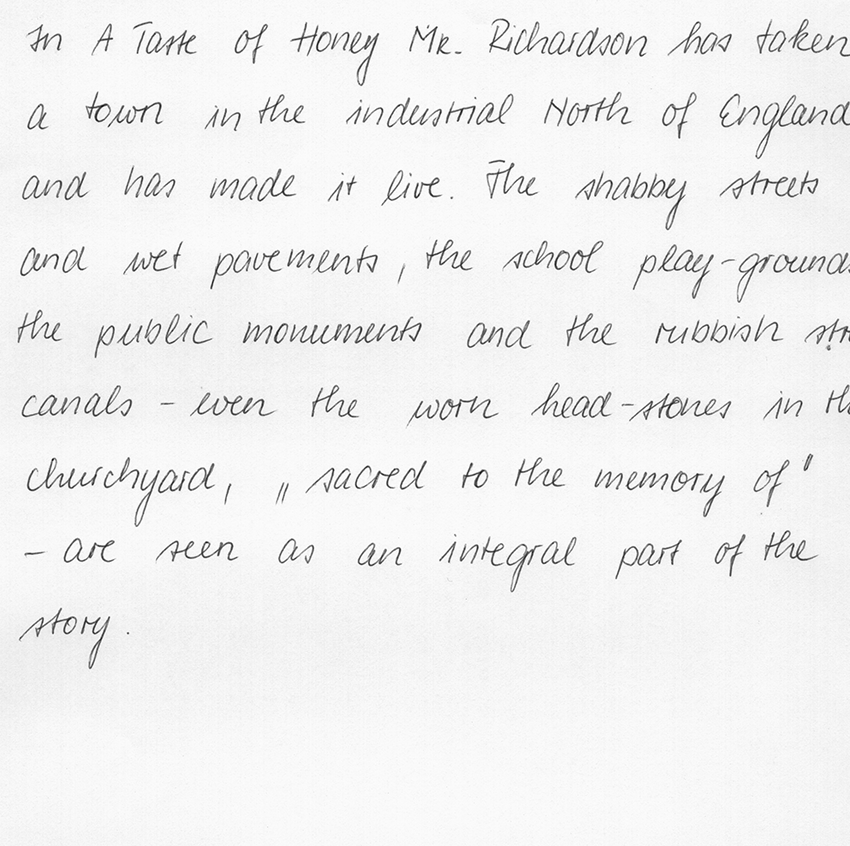 In A Taste of Honey Mr. Richardson has taken
a town in the industrial North of England
and has made it live. The shabby streets
and wet pavements, the school play-grounds
the public monuments and the rubbish
canals - even the worn head-stones in
churchyard, „sacred to the memory of"
- are seen as an integral part of the
story.